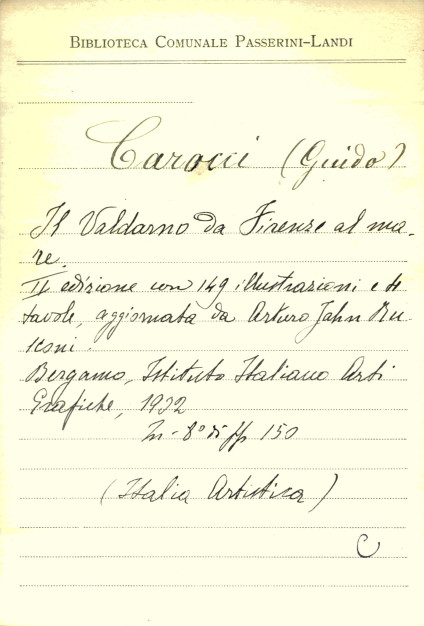 BIBLIOTECA COMUNALE PASSERINI-LANDI
Carocci (Guido)
Il Valdarno da Firenze al ma-
re.
II edizione con 149 illustrazioni e 4
tavole, aggiornata da Arturo Jahn Ru-
sconi.
Bergamo, Istituto Italiano Arti
Grafiche, 1932
In-8° di pp 150
(Italia Artistica)
C